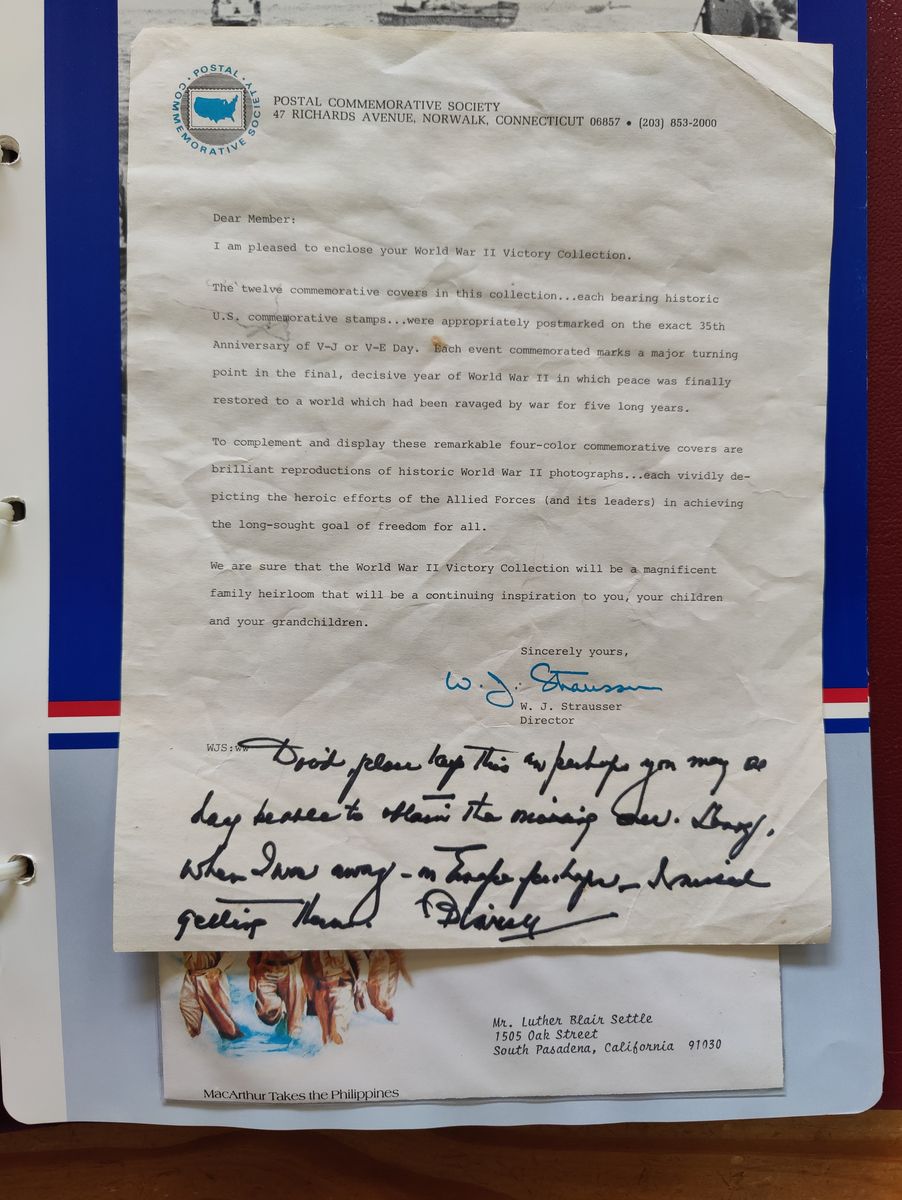 POSTAL COMMEMORATIVE SOCIETY
POSTAL COMMEMORATIVE SOCIETY
47 RICHARDS AVENUE, NORWALK, CONNECTICUT 06857 • (203) 853-2000
Dear Member:
I am pleased to enclose your World War II Victory Collection.
The twelve commemorative covers in this collection...each bearing historic
U.S. commemorative stamps...were appropriately postmarked on the exact 35th
Anniversary of V-J or V-E Day. Each event commemorated marks a major turning
point in the final, decisive year of World War II in which peace was finally
restored to a world which had been ravaged by war for five long years.
To complement and display these remarkable four-color commemorative covers are
brilliant reproductions of historic World War II photographs...each vividly de-
picting the heroic efforts of the Allied Forces (and its leaders) in achieving
the long-sought goal of freedom for all.
We are sure that the World War II Victory Collection will be a magnificent
family heirloom that will be a continuing inspiration to you, your children
and your grandchildren.
Sincerely yours,
W. J. Strausser
W. J. Strausser
Director
WJS:ww
please keep this perhaps you may
day be able to obtain the missing
when I was away - in Europe perhaps - I missed
getting them.
Mr. Luther Blair Settle
1505 Oak Street
South Pasadena, California 91030
MacArthur Takes the Philippines